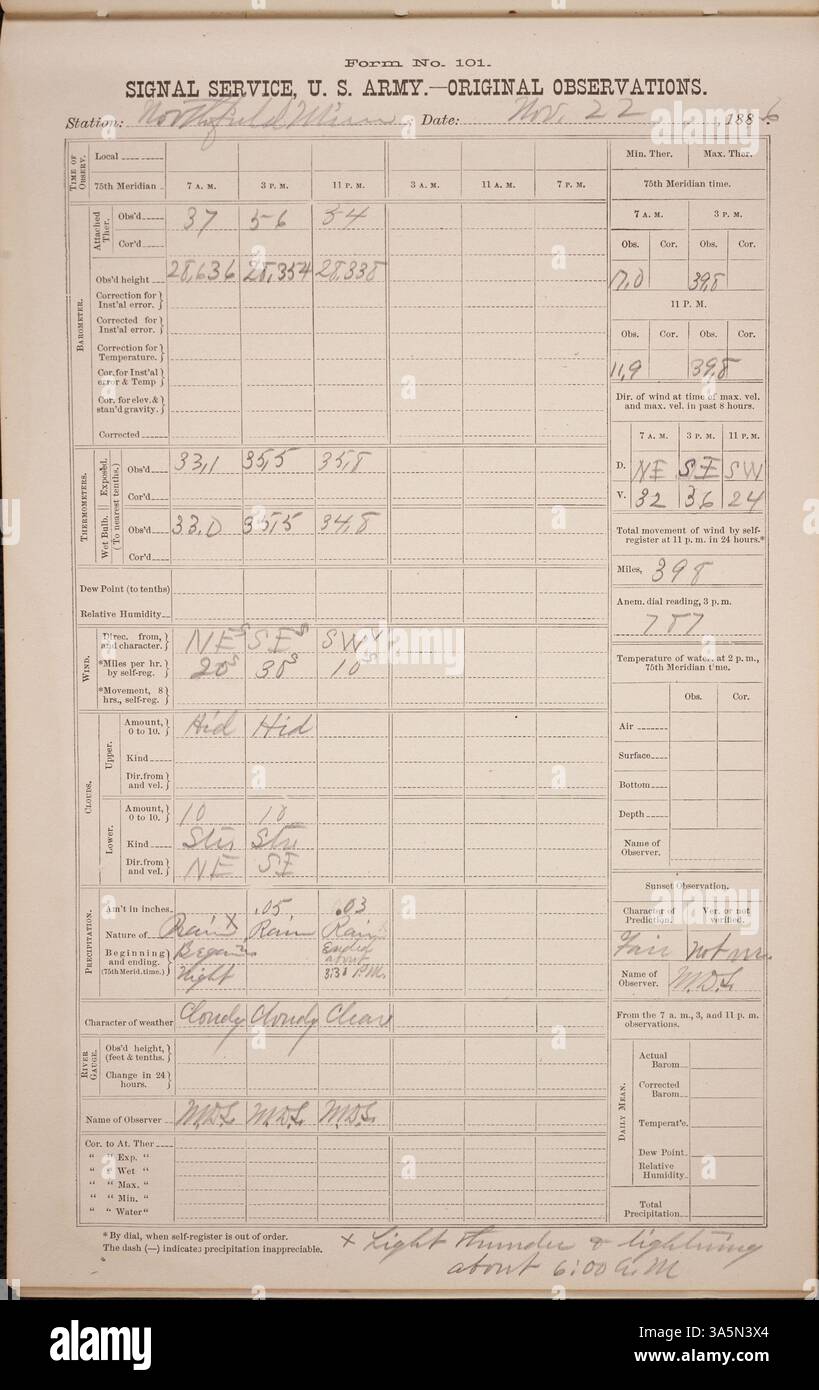 Form No. 101.
SIGNAL SERVICE, U. S. ARMY.—ORIGINAL OBSERVATIONS.
Station: Northfield Minn. Date: Nov. 22, 1886.
TIME OF OBSERV.
Local
75th Meridian 7 A. M. 3 P. M. 11 P. M. 3 A. M. 11 A. M. 7 P. M.
BAROMETER.
Attached Ther.
Obs'd 37 56 54
Cor'd
Obs'd height 28,636 28,354 28,338
Correction for Inst'al error.
Corrected for Inst'al error.
Correction for Temperature.
Cor. for Inst'al error & Temp
Cor. for elev. & stan'd gravity.
Corrected
THERMOMETERS.
(To nearest tenths.)
Exposed.
Obs'd 33,1 35,5 35,8
Cor'd
Wet Bulb.
Obs'd 33.0 35,5 34,8
Cor'd
Dew Point (to tenths)
Relative Humidity
WIND.
Direc. from, and character. NE S SE S SW
*Miles per hr. by self-reg. 20 S 30 S 10 S
*Movement, 8 hrs., self-reg.
CLOUDS.
Upper.
Amount, 0 to 10. Hid Hid
Kind
Dir. from and vel.
Lower.
Amount, 0 to 10. 10 10
Kind
Dir. from and vel. NE SE
PRECIPITATION.
Am't in inches .05 .03
Nature of Rain X Rain Rain
Beginning and ending. (75th Merid. time.) Began in Night Ended about 3:30 P.M.
Character of weather Cloudy Cloudy Clear
RIVER GAUGE.
Obs'd height, (feet & tenths.)
Change in 24 hours.
Name of Observer M.D.S. M.D.S. M.D.S.
Cor. to At. Ther
" " Exp. "
" " Wet "
" " Max. "
" " Min. "
" " Water"
Min. Ther. Max. Ther.
75th Meridian time.
7 A. M. 3 P. M.
Obs. Cor. Obs. Cor.
17,0 39,8
11 P. M.
Obs. Cor. Obs. Cor.
11,9 39,8
Dir. of wind at time of max. vel. and max. vel. in past 8 hours.
7 A. M. 3 P. M. 11 P. M.
D. NE SE SW
V. 32 36 24
Total movement of wind by self-register at 11 p. m. in 24 hours.*
Miles, 398
Anem. dial reading, 3 p. m.
787
Temperature of water at 2 p. m., 75th Meridian time.
Obs. Cor.
Air
Surface
Bottom
Depth
Name of Observer.
Sunset Observation.
Character of Prediction. Ver. or not verified.
Fair not
Name of Observer. M.D.S.
From the 7 a. m., 3, and 11 p. m. observations.
DAILY MEAN.
Actual Barom.
Corrected Barom.
Temperat'e.
Dew Point.
Relative Humidity.
Total Precipitation.
*By dial, when self-register is out of order.
The dash (—) indicates precipitation inappreciable.
x Light thunder & lightning
about 6:00 A.M
alamy
Image ID: 3A5N3X4
www.alamy.com